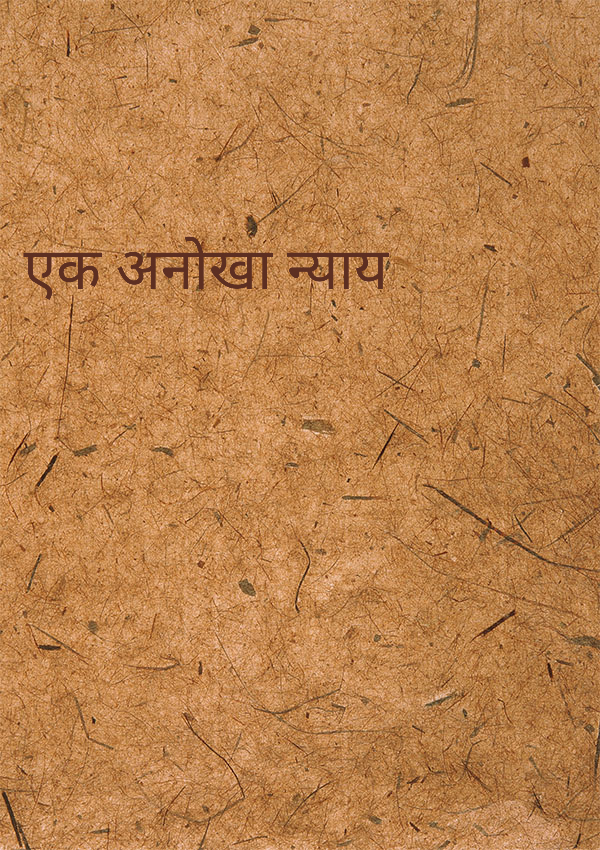 एक अनोखा न्याय